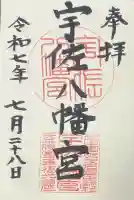 奉拝
宇佐八幡宮
令和七年 七月二十八日